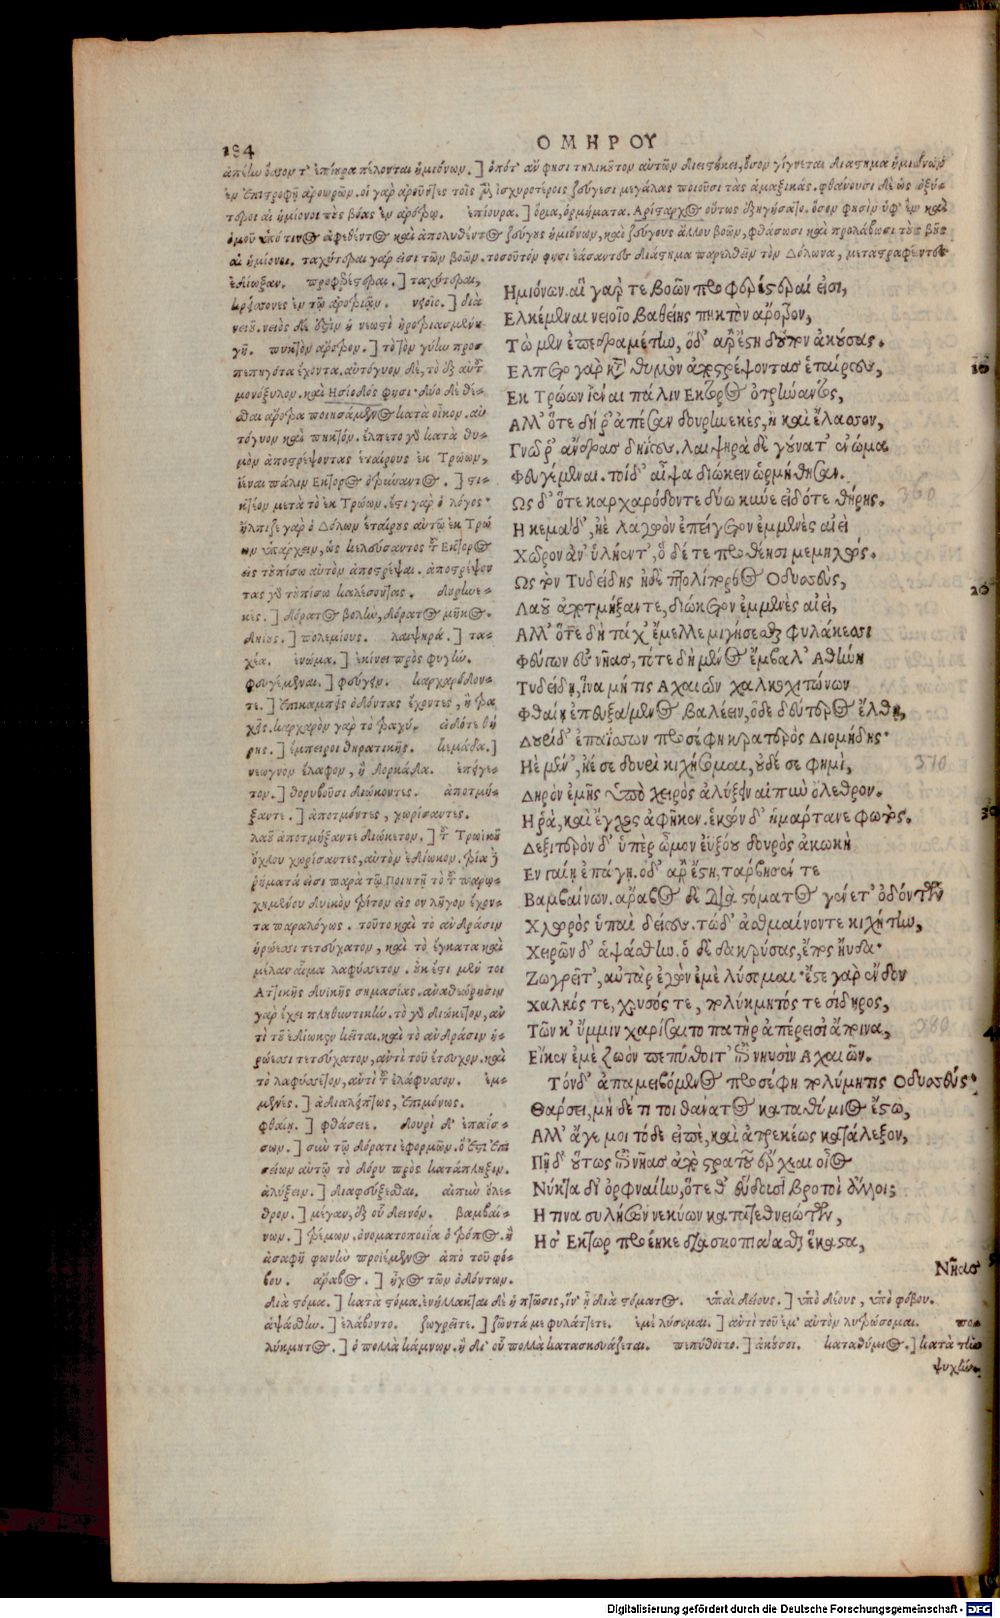 184
ΟΜΗΡΟΥ
ἀπέλω ὅσσον τ' ἐπίουρα πέλονται ἡμιόνων.] ὁπότ' ἂν φησι τηλικοῦτον αὐτῶν διειστήκει, ὅσον γίγνεται διάστημα ἡμιόνων
ἐν ἐπιστροφῇ ἀρουρῶν. οἱ γὰρ ἀροῦντες τοῖς μὲν ἰσχυροτέροις ζεύγεσι μεγάλας ποιοῦσι τὰς αὔλακας. φθάνουσι δὲ ὡς ὀξύ-
τεραι αἱ ἡμίονοι τὰς βόας ἐν ἀρότρῳ. ἐπίουρα.] ὅρια, ὁρμήματα. Ἀρίσταρχος οὕτως ἐξηγήσατο. ὅσον φησὶν ὑφ' ἓν καὶ
ὁμοῦ ὑπό τινος ἀφεθέντος καὶ ἀπολυθέντος ζεύγους ἡμιόνων, καὶ ζεύγους ἄλλου βοῶν, φθάσωσι καὶ προλάβωσι τὰς βόας
αἱ ἡμίονοι. ταχύτεραι γάρ εἰσι τῶν βοῶν. τοσοῦτόν φησι ἐάσαντες διάστημα παρελθεῖν τὸν Δόλωνα, μεταστραφέντες
ἐδίωξαν. προφερέστεραι.] ταχύτεραι,
κρείσσονες ἐν τῷ ἀροτριᾷν. νειοῖο.] διὰ
νειοῦ. νειὸς δέ ἐστιν ἡ νεωστὶ ἠροτριασμένη
γῆ. πηκτὸν ἄροτρον.] τὸ τὸν γύην προσ
πεπηγότα ἔχοντα. αὐτόγυον δὲ, τὸ ἐξ αὐτοῦ
μονόξυλον. καὶ Ἡσίοδός φησι· δύο δὲ θέ-
σθαι ἄροτρα ποιησάμενος κατὰ οἶκον. αὐ
τόγυον καὶ πηκτόν. ἔλπετο γὰρ κατὰ θυ-
μὸν ἀποστρέψοντας ἑταίρους ἐκ Τρώων,
ἰέναι πάλιν Εκτορος ὀτρύναντος.] στι-
κτέον μετὰ τὸ ἐκ Τρώων. ἔστι γὰρ ὁ λόγος·
ἤλπιζε γὰρ ὁ Δόλων ἑταίρους αὐτῷ ἐκ Τρώ
ων ὑπάρχειν, ὡς κελεύσαντος τοῦ Εκτορος
εἰς τοὐπίσω αὐτὸν ἀποστρέψαι. ἀποστρέψον
τας γὰρ τοὐπίσω καλέσοντας. δουρηνε-
κές.] δόρατος βολὴν, δόρατος μῆκος.
δηίους.] πολεμίους. λαιψηρά.] τα-
χέα. ἐνώμα.] ἐκίνει πρὸς φυγήν.
φευγέμεναι.] φεύγειν. καρχαρόδον-
τε.] ἐπικαμπεῖς ὀδόντας ἔχοντες, ἢ τρα
χεῖς. κάρχαρον γὰρ τὸ τραχύ. εἰδότε θή
ρης.] ἔμπειροι θηρατικῆς. κεμάδα.]
νεωγνὸν ἔλαφον, ἢ δορκάδα. ἐπείγε-
τον.] θορυβοῦσι διώκοντες. ἀποτμή-
ξαντε.] ἀποτμόντες, χωρίσαντες.
λαοῦ ἀποτμήξαντε διώκετον.] τοῦ Τρωϊκοῦ
ὄχλου χωρίσαντες, αὐτὸν ἐδίωκον. τρία δὲ
ῥήματά εἰσι παρὰ τῷ Ποιητῇ τὸ τοῦ παρῳ-
χημένου δυϊκὸν τρίτον εἰς ον λῆγον ἔχον-
τα παραλόγως. τοῦτο καὶ τὸ ἀνδράσιν
ἡρώεσσι τετεύχατον, καὶ τὸ ἔγκατα καὶ
μέλαν αἷμα λαφύσσετον. οὐκ ἔστι μέν τοι
Αττικῆς δυϊκῆς σημασίας. ἀναθεώρησιν
γὰρ ἔχει πληθυντικήν. τὸ γὰρ διώκετον, ἀν
τὶ τοῦ ἐδίωκον κεῖται. καὶ τὸ ἀνδράσιν ἡ-
ρώεσσι τετεύχατον, ἀντὶ τοῦ ἔτευχον. καὶ
τὸ λαφύσσετον, ἀντὶ τοῦ ἐλάφυσσον. ἐμ-
μενές.] ἀδιαλείπτως, ἐπιμόνως.
φθαίη.] φθάσειε. δουρὶ δ' ἐπαΐσ-
σων.] σὺν τῷ δόρατι ἐφορμῶν. ὅ ἐστι ἐπι
σείων αὐτῷ τὸ δόρυ πρὸς κατάπληξιν.
ἀλύξειν.] διαφεύξεσθαι. αἰπὺν ὄλε-
θρον.] μέγαν, ἐξ οὗ δεινόν. βαμβαί-
νων.] τρέμων. ὀνοματοποιΐα ὁ τρόπος. ἢ
ἀσαφῆ φωνὴν προϊέμενος ἀπὸ τοῦ φό-
βου. ἄραβος.] ἦχος τῶν ὀδόντων.
Ημιόνων. αἳ γάρ τε βοῶν προφερέστεραί εἰσι,
Ελκέμεναι νειοῖο βαθείης πηκτὸν ἄροτρον,
Τὼ μὲν ἐπεδραμέτην, ὅδ' ἄρ' ἔστη δοῦπον ἀκούσας.
Ελπετο γὰρ κατὰ θυμὸν ἀποστρέψοντας ἑταίρους,
Εκ Τρώων ἰέναι πάλιν Εκτορος ὀτρύναντος,
Αλλ' ὅτε δή ῥ' ἄπεσαν δουρηνεκὲς, ἢ καὶ ἔλασσον,
Γνῶ ῥ' ἄνδρας δηίους. λαιψηρὰ δὲ γούνατ' ἐνώμα
Φευγέμεναι. τοὶ δ' αἶψα διώκειν ὡρμήθησαν.
Ως δ' ὅτε καρχαρόδοντε δύω κύνε εἰδότε θήρης. 360
Η κεμάδ', ἠὲ λαγωὸν ἐπείγετον ἐμμενὲς αἰεὶ
Χῶρον ἀν' ὑλήενθ', ὁ δέ τε προθέησι μεμηκώς.
Ως τὸν Τυδείδης ἠδὲ πτολίπορθος Οδυσσεὺς,
Λαοῦ ἀποτμήξαντε, διώκετον ἐμμενὲς αἰεὶ,
Αλλ' ὅτε δὴ τάχ' ἔμελλε μιγήσεσθαι φυλάκεσσι
Φεύγων ἐς νῆας, τότε δὴ μένος ἔμβαλ' Αθήνη
Τυδείδῃ, ἵνα μή τις Αχαιῶν χαλκοχιτώνων
Φθαίη ἐπευξάμενος βαλέειν, ὁ δὲ δεύτερος ἔλθῃ,
Δουρὶ δ' ἐπαΐσσων προσέφη κρατερὸς Διομήδης·
Ηὲ μέν', ἠέ σε δουρὶ κιχήσομαι, οὐδέ σε φημὶ, 370
Δηρὸν ἐμῆς ὑπὸ χειρὸς ἀλύξειν αἰπὺν ὄλεθρον.
Η ῥά, καὶ ἔγχος ἀφῆκεν. ἑκὼν δ' ἡμάρτανε φωτός.
Δεξιτερὸν δ' ὑπὲρ ὦμον ἐΰξου δουρὸς ἀκωκὴ
Εν γαίῃ ἐπάγη. ὁδ' ἄρ' ἔστη, τάρβησέν τε
Βαμβαίνων. ἄραβος δὲ διὰ στόματος γένετ' ὀδόντων
Χλωρὸς ὑπαὶ δείους. τὼ δ' ἀσθμαίνοντε κιχήτην,
Χειρῶν δ' ἁψάσθην. ὁ δὲ δακρύσας, ἔπος ηὔδα·
Ζωγρεῖτ', αὐτὰρ ἐγὼν ἐμὲ λύσομαι· ἔστι γὰρ ἔνδον
Χαλκός τε, χρυσός τε, πολύκμητός τε σίδηρος,
Τῶν κ' ὔμμιν χαρίσαιτο πατὴρ ἀπερείσι' ἄποινα, 380
Εἴκεν ἐμὲ ζωὸν πεπύθοιτ' ἐπὶ νηυσὶν Αχαιῶν.
Τόνδ' ἀπαμειβόμενος προσέφη πολύμητις Οδυσσεύς·
Θάρσει, μὴ δέ τί τοι θάνατος καταθύμιος ἔστω,
Αλλ' ἄγε μοι τόδε εἰπὲ, καὶ ἀτρεκέως κατάλεξον,
Πῆ δ' οὕτως ἐπὶ νῆας ἀπὸ στρατοῦ ἔρχεαι οἶος
Νύκτα δι' ὀρφναίην, ὅτε θ' εὕδουσι βροτοὶ ἄλλοι;
Η τινα συλήσων νεκύων κατατεθνειώτων,
Η σ' Εκτωρ προέηκε διασκοπιᾶσθαι ἕκαστα,
Νῆας
διὰ στόμα.] κατὰ στόμα. ἐνήλλακται δὲ ἡ πτῶσις, ἵν' ᾖ διὰ στόματος. ὑπαὶ δείους.] ὑπὸ δέους, ὑπὸ φόβου.
ἁψάσθην.] ἐλάβοντο. ζωγρεῖτε.] ζῶντά με φυλάττετε. ἐμὲ λύσομαι.] ἀντὶ τοῦ ἐμ' αὐτὸν λυτρώσομαι. πο-
λύκμητος.] ὁ πολλὰ κάμνων. ἢ δι' οὗ πολλὰ κατασκευάζεται. πεπύθοιτο.] ἀκούσοι. καταθύμιος.] κατὰ τὴν
ψυχὴν.
Digitalisierung gefördert durch die Deutsche Forschungsgemeinschaft - DFG